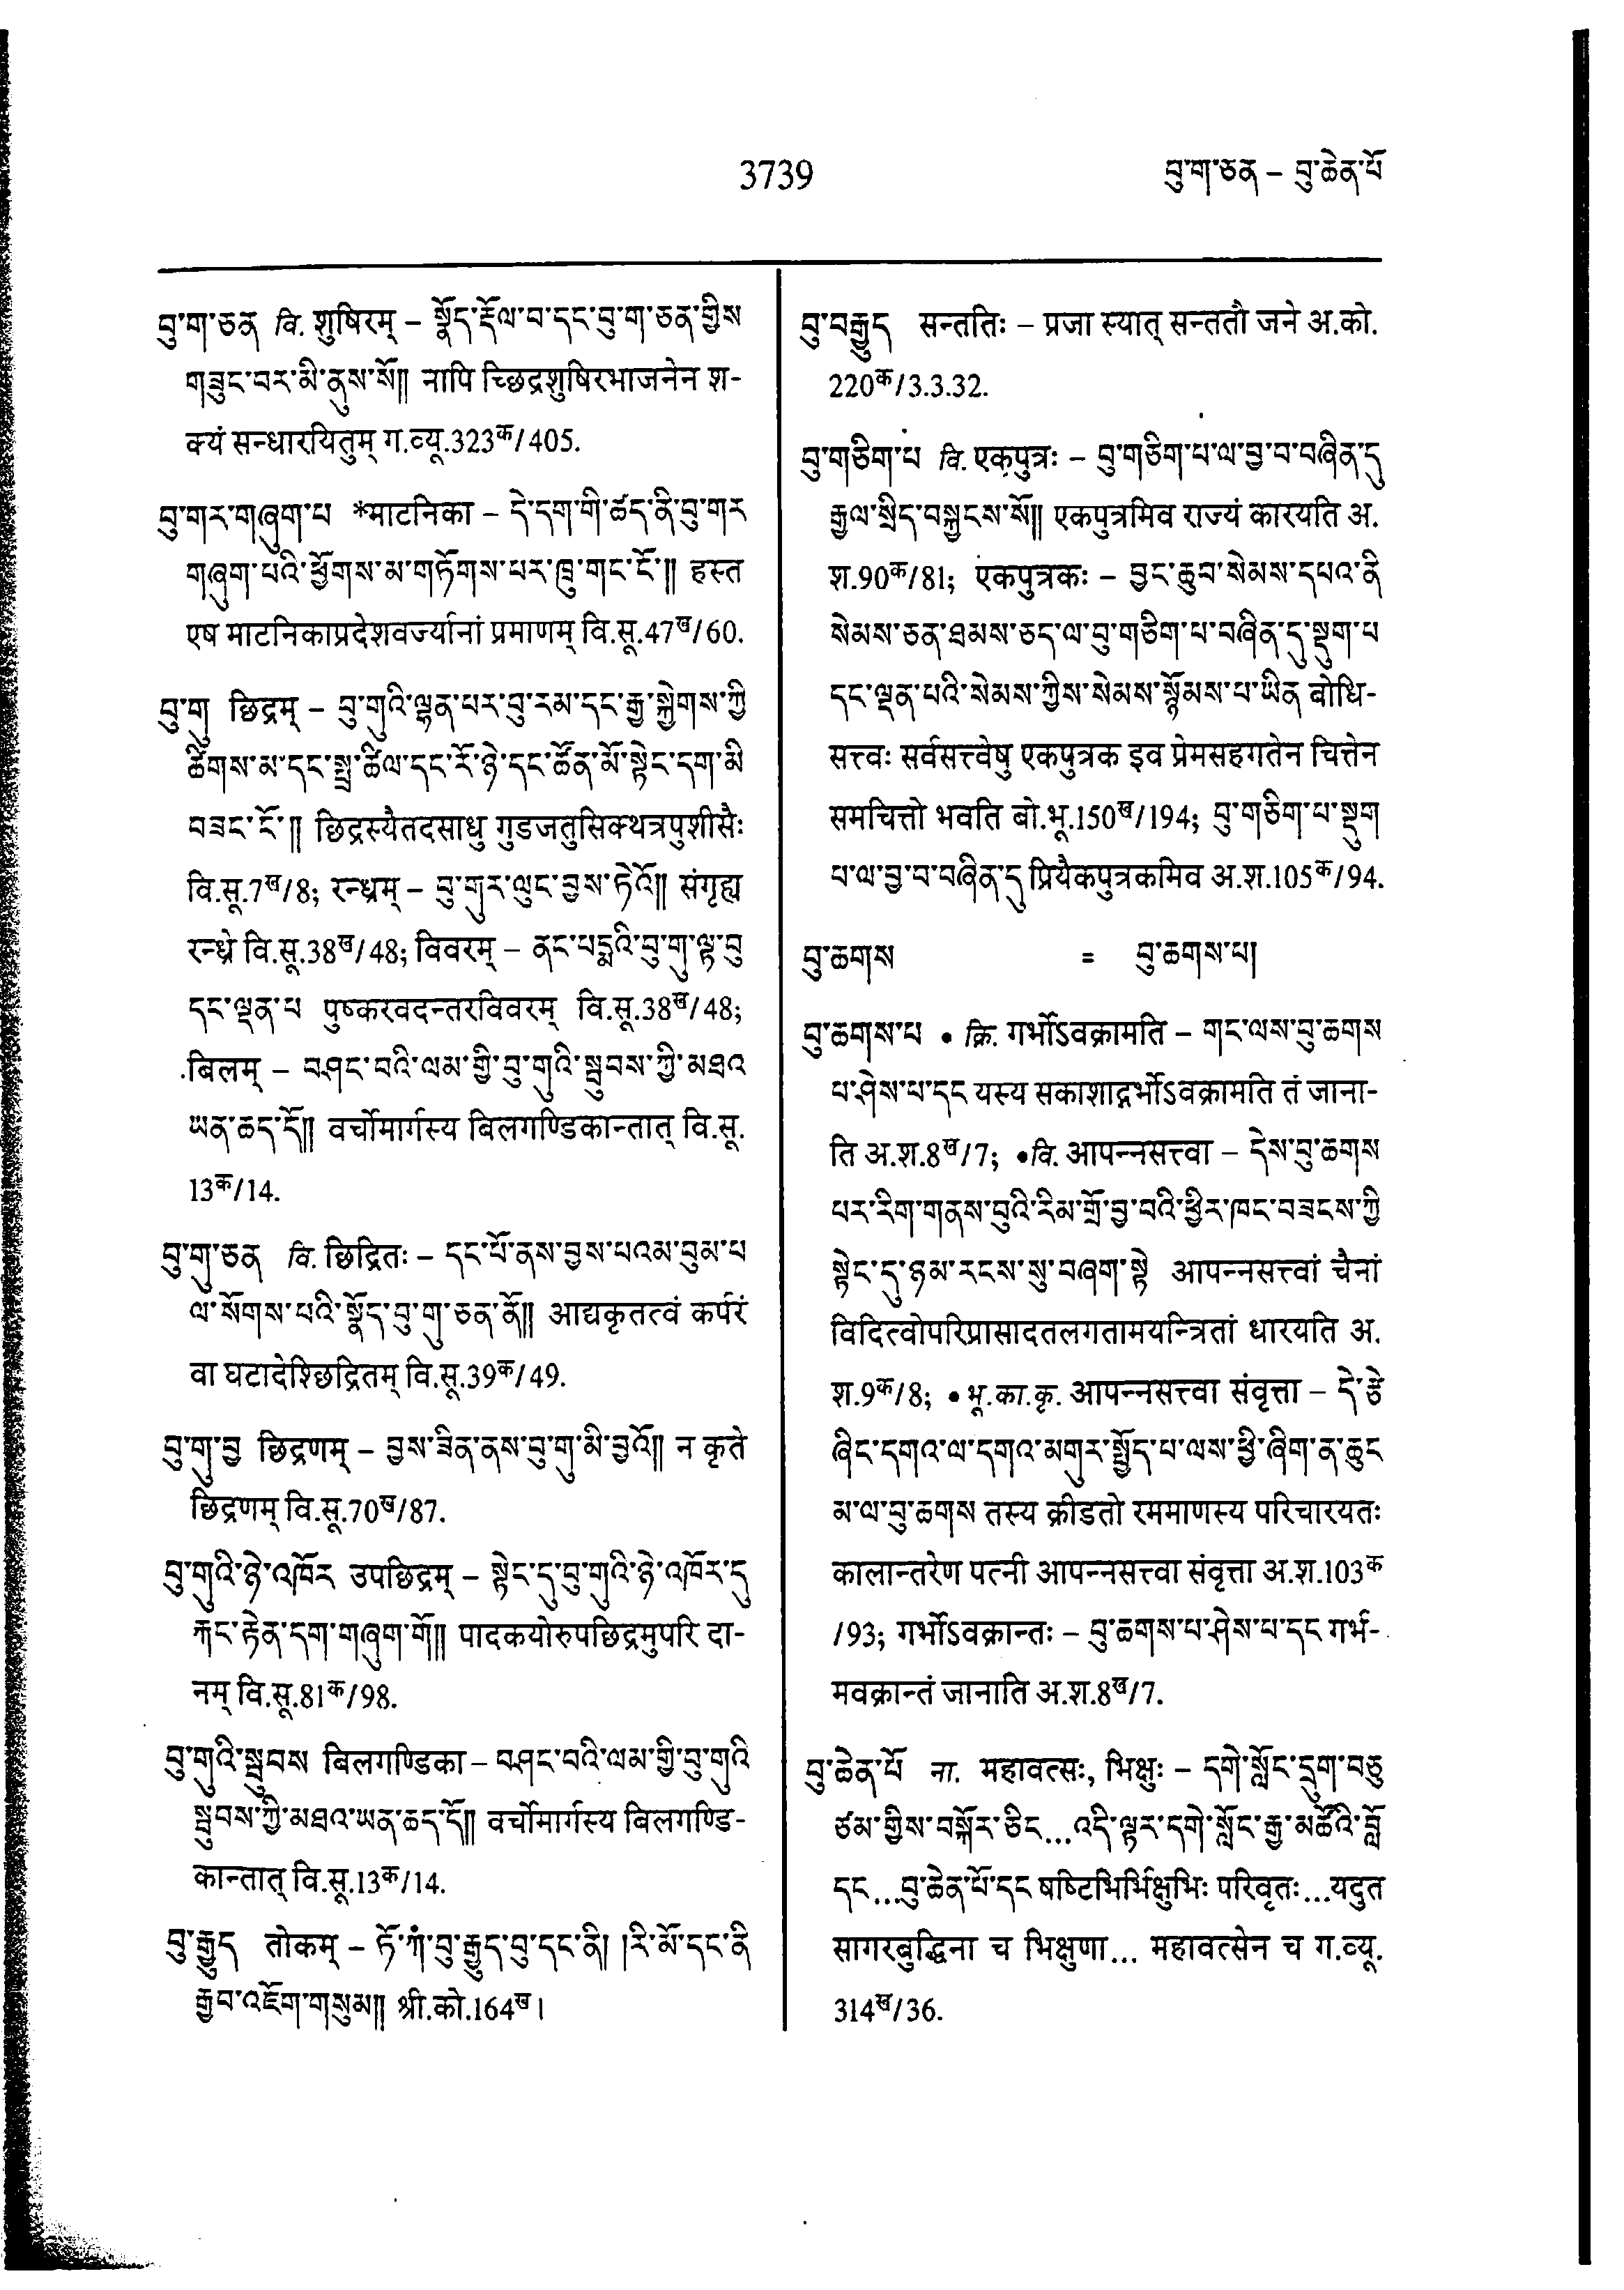 3739
བུ་ག་ཅན – བུ་ཆེན་པོ
བུ་ག་ཅན वि. शुषिरम् – སྣོད་རྡོལ་བ་དང་བུ་ག་ཅན་གྱིས
གཟུང་བར་མི་ནུས་སོ།། नापि च्छिद्रशुषिरभाजनेन श-
क्यं सन्धारयितुम् ग.व्यू.323क/405.
བུ་གར་གཞུག་པ *माटनिका – དེ་དག་གི་ཚད་ནི་བུ་གར
གཞུག་པའི་ཕྱོགས་མ་གཏོགས་པར་ཁྲུ་གང་ངོ་།། हस्त
एष माटनिकाप्रदेशवर्ज्यानां प्रमाणम् वि.सू.47ख/60.
བུ་གུ छिद्रम् – བུ་གུའི་ལྷན་པར་བུ་རམ་དང་རྒྱ་སྐྱེགས་ཀྱི
ཚིགས་མ་དང་སྤྲ་ཚིལ་དང་རོ་ཉེ་དང་ཚོན་མོ་སྟེང་དག་མི
བཟང་ངོ་།། छिद्रस्यैतदसाधु गुडजतुसिक्थत्रपुशीसैः
वि.सू.7ख/8; रन्ध्रम् – བུ་གུར་ལུང་བྱས་ཏེའོ།། संगृह्य
रन्ध्रे वि.सू.38ख/48; विवरम् – ནང་པདྨའི་བུ་གུ་ལྟ་བུ
དང་ལྡན་པ पुष्करवदन्तरविवरम् वि.सू.38ख/48;
बिलम् – བཤང་བའི་ལམ་གྱི་བུ་གུའི་སྦུབས་ཀྱི་མཐའ
ཡན་ཆད་དོ།། वर्चोमार्गस्य बिलगण्डिकान्तात् वि.सू.
13क/14.
བུ་གུ་ཅན वि. छिद्रितः – དང་པོ་ནས་བྱས་པའམ་བུམ་པ
ལ་སོགས་པའི་སྣོད་བུ་གུ་ཅན་ནོ།། आद्यकृतत्वं कर्परं
वा घटादेश्छिद्रितम् वि.सू.39क/49.
བུ་གུ་བྱ छिद्रणम् – བྱས་ཟིན་ནས་བུ་གུ་མི་བྱའོ།། न कृते
छिद्रणम् वि.सू.70ख/87.
བུ་གུའི་ཉེ་འཁོར उपछिद्रम् – སྟེང་དུ་བུ་གུའི་ཉེ་འཁོར་དུ
རྐང་རྟེན་དག་གཞུག་གོ།། पादकयोरुपछिद्रमुपरि दा-
नम् वि.सू.81क/98.
བུ་གུའི་སྦུབས बिलगण्डिका – བཤང་བའི་ལམ་གྱི་བུ་གུའི
སྦུབས་ཀྱི་མཐའ་ཡན་ཆད་དོ།། वर्चोमार्गस्य बिलगण्डि-
कान्तात् वि.सू.13क/14.
བུ་རྒྱུད तोकम् – ཏོ་ཀཾ་བུ་རྒྱུད་བུ་དང་ནི། །རི་མོ་དང་ནི
རྒྱབ་འཇོག་གསུམ།། श्री.को.164ख।
བུ་བརྒྱུད सन्ततिः – प्रजा स्यात् सन्ततौ जने अ.को.
220क/3.3.32.
བུ་གཅིག་པ वि. एकपुत्रः – བུ་གཅིག་པ་ལ་བྱ་བ་བཞིན་དུ
རྒྱལ་སྲིད་བསྐྱངས་སོ།། एकपुत्रमिव राज्यं कारयति अ.
श.90क/81; एकपुत्रकः – བྱང་ཆུབ་སེམས་དཔའ་ནི
སེམས་ཅན་ཐམས་ཅད་ལ་བུ་གཅིག་པ་བཞིན་དུ་སྡུག་པ
དང་ལྡན་པའི་སེམས་ཀྱིས་སེམས་སྙོམས་པ་ཡིན बोधि-
सत्त्वः सर्वसत्त्वेषु एकपुत्रक इव प्रेमसहगतेन चित्तेन
समचित्तो भवति बो.भू.150ख/194; བུ་གཅིག་པ་སྡུག
པ་ལ་བྱ་བ་བཞིན་དུ प्रियैकपुत्रकमिव अ.श.105क/94.
བུ་ཆགས = བུ་ཆགས་པ།
བུ་ཆགས་པ • क्रि. गर्भोऽवक्रामति – གང་ལས་བུ་ཆགས
པ་ཤེས་པ་དང यस्य सकाशाद्गर्भोऽवक्रामति तं जाना-
ति अ.श.8ख/7; •वि. आपन्नसत्त्वा – དེས་བུ་ཆགས
པར་རིག་གནས་བུའི་རིམ་གྲོ་བྱ་བའི་ཕྱིར་ཁང་བཟངས་ཀྱི
སྟེང་དུ་ཉམ་རངས་སུ་བཞག་སྟེ आपन्नसत्त्वां चैनां
विदित्वोपरिप्रासादतलगतामयन्त्रितां धारयति अ.
श.9क/8; • भू.का.कृ. आपन्नसत्त्वा संवृत्ता – དེ་རྩེ
ཞིང་དགའ་ལ་དགའ་མགུར་སྤྱོད་པ་ལས་ཕྱི་ཞིག་ན་ཆུང
མ་ལ་བུ་ཆགས तस्य क्रीडतो रममाणस्य परिचारयतः
कालान्तरेण पत्नी आपन्नसत्त्वा संवृत्ता अ.श.103क
/93; गर्भोऽवक्रान्तः – བུ་ཆགས་པ་ཤེས་པ་དང गर्भ-
मवक्रान्तं जानाति अ.श.8ख/7.
བུ་ཆེན་པོ ना. महावत्सः, भिक्षुः – དགེ་སློང་དྲུག་བཅུ
ཙམ་གྱིས་བསྐོར་ཅིང...འདི་ལྟར་དགེ་སློང་རྒྱ་མཚོའི་བློ
དང...བུ་ཆེན་པོ་དང षष्टिभिर्भिक्षुभिः परिवृतः...यदुत
सागरबुद्धिना च भिक्षुणा... महावत्सेन च ग.व्यू.
314ख/36.